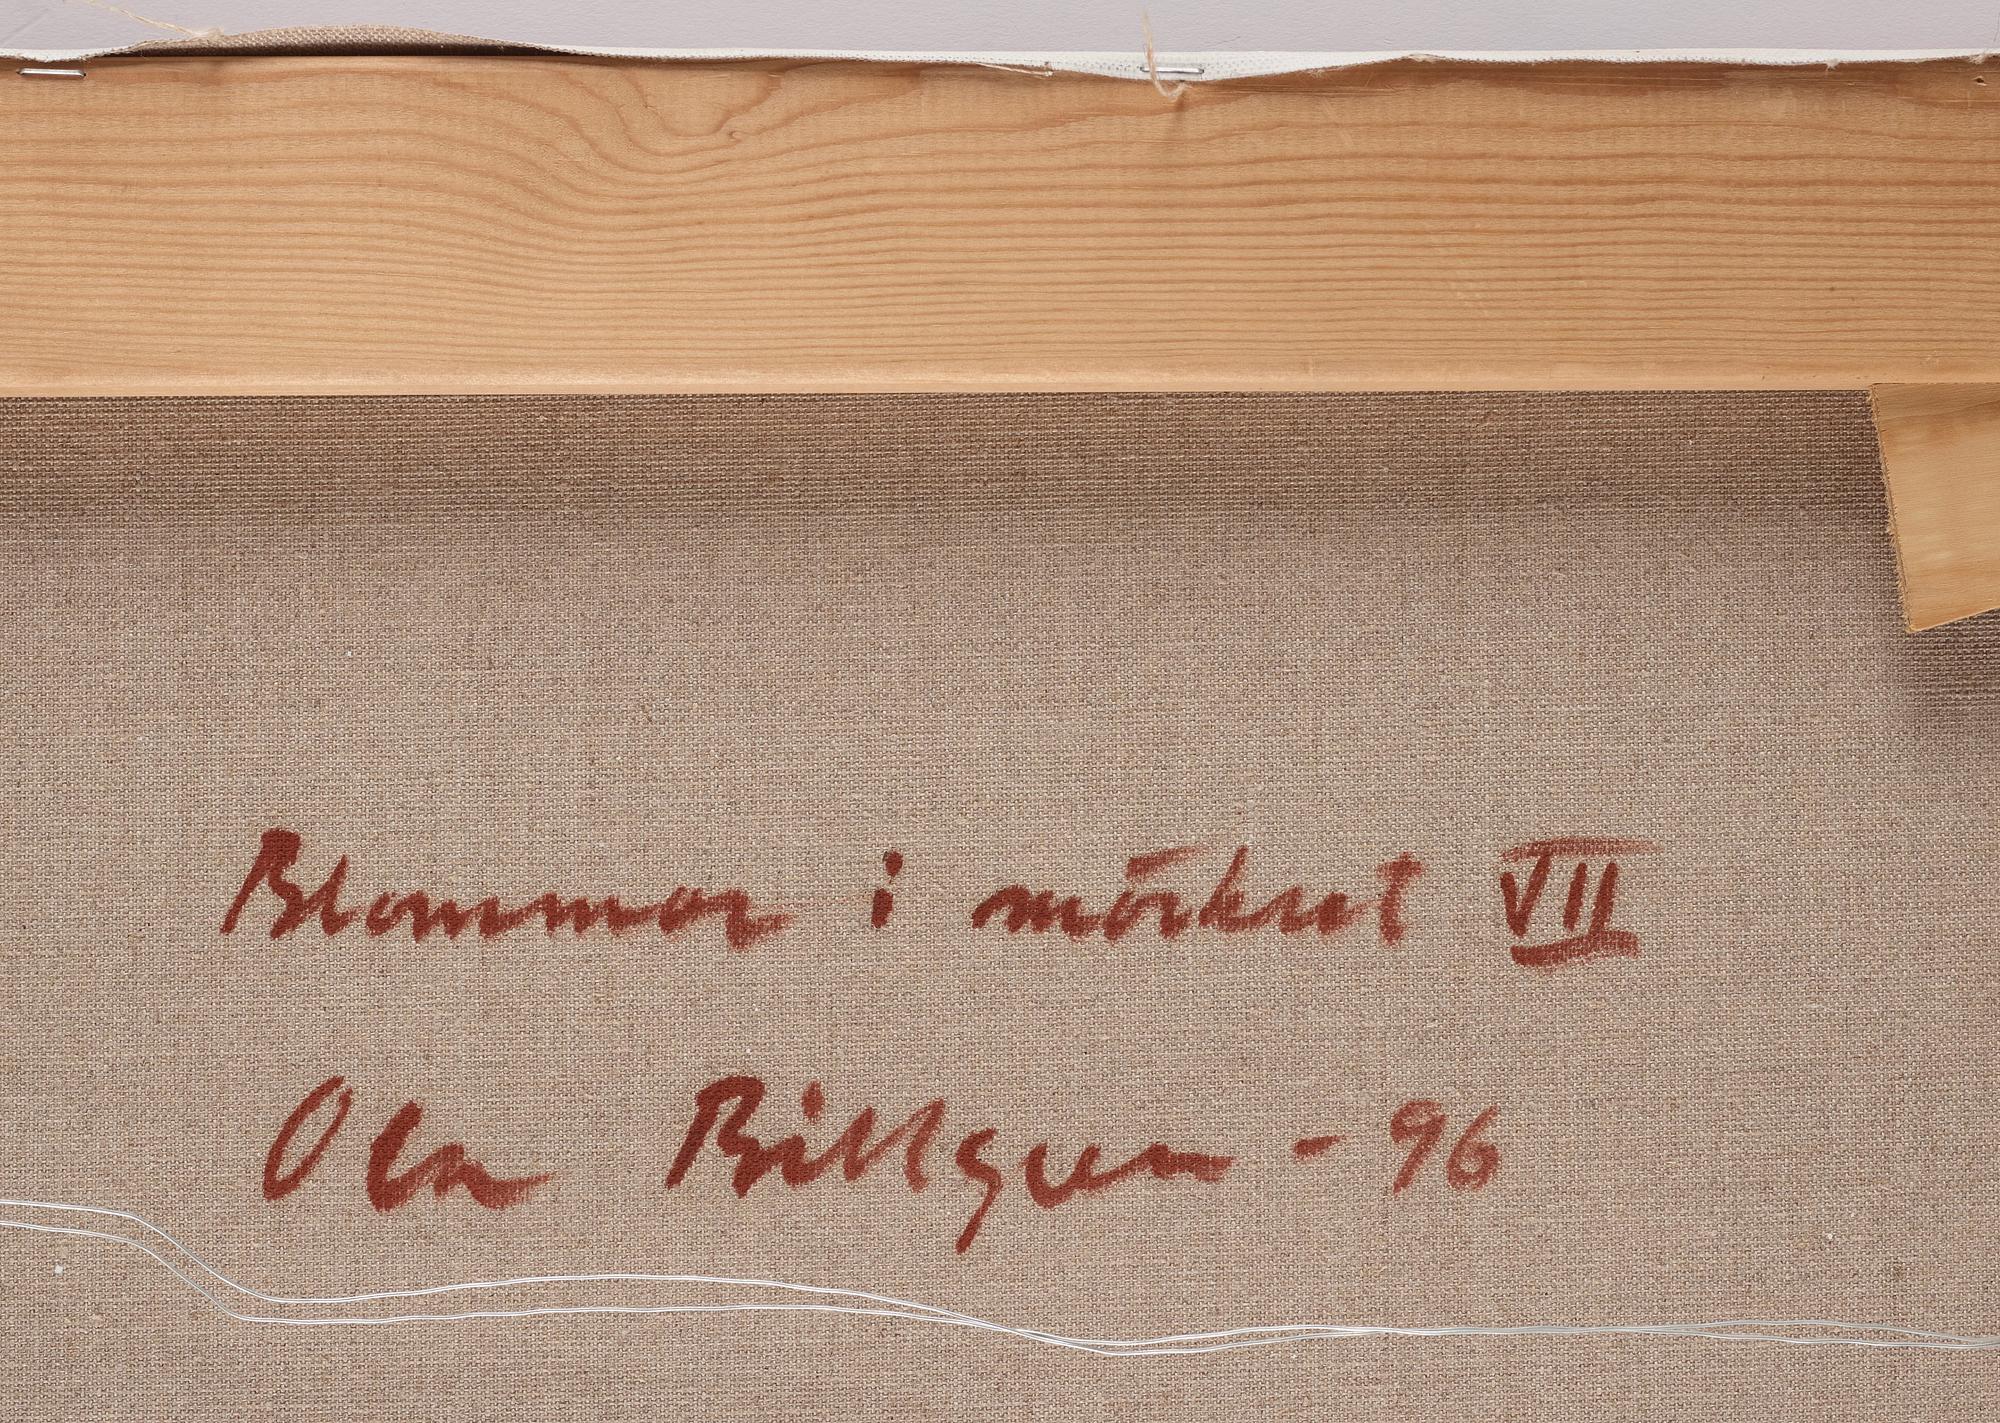 Blommor i mörkret VII
Ola Billgren - 96